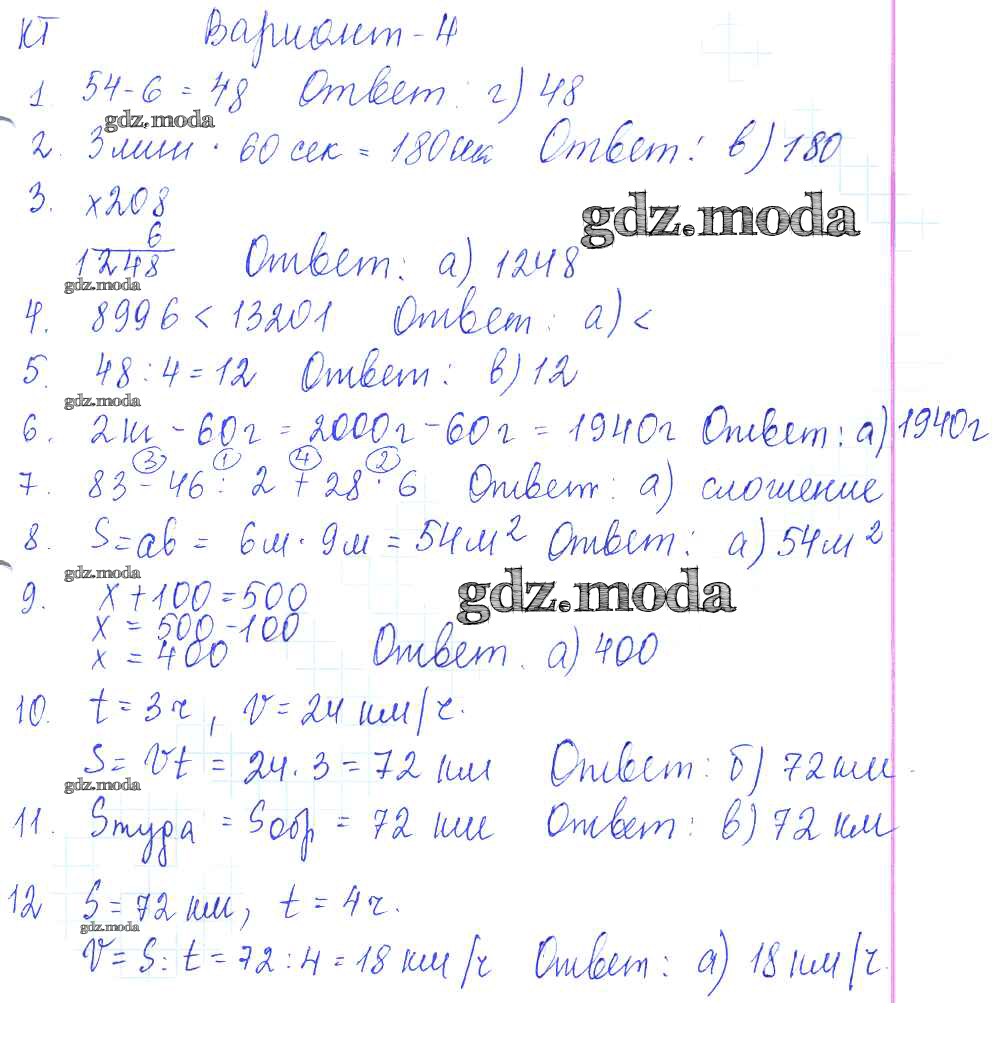 КТ Вариант - 4
1. 54 - 6 = 48 Ответ: г) 48
gdz.moda
2. 3 мин · 60 сек = 180 сек Ответ: в) 180
3. х 208
gdz.moda
6
1248 Ответ: а) 1248
gdz.moda
4. 8996 < 13201 Ответ: а) <
5. 48 : 4 = 12 Ответ: в) 12
gdz.moda
6. 2 кг - 60 г = 2000 г - 60 г = 1940 г Ответ: а) 1940 г
3 1 4 2
7. 83 - 46 : 2 + 28 · 6 Ответ: а) сложение
8. S = ab = 6 м · 9 м = 54 м² Ответ: а) 54 м²
gdz.moda
9. х + 100 = 500
gdz.moda
х = 500 - 100
х = 400 Ответ: а) 400
10. t = 3 ч, V = 24 км/ч.
S = Vt = 24 · 3 = 72 км Ответ: б) 72 км.
gdz.moda
11. Sтуда = Sобр = 72 км Ответ: в) 72 км
12 S = 72 км, t = 4 ч.
gdz.moda
V = S : t = 72 : 4 = 18 км/ч Ответ: а) 18 км/ч.